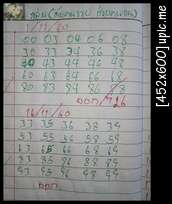 1/11/60
00 03 04 06 08
30 33 34 36 38
40 43 44 46 48
60 63 64 66 68
80 83 84 86 88
ออก/726
16/11/60
33 35 36 38 39
53 55 56 58 59
63 65 66 68 69
83 85 86 88 89
93 95 96 98 99
ออก
[452x600] upic.me